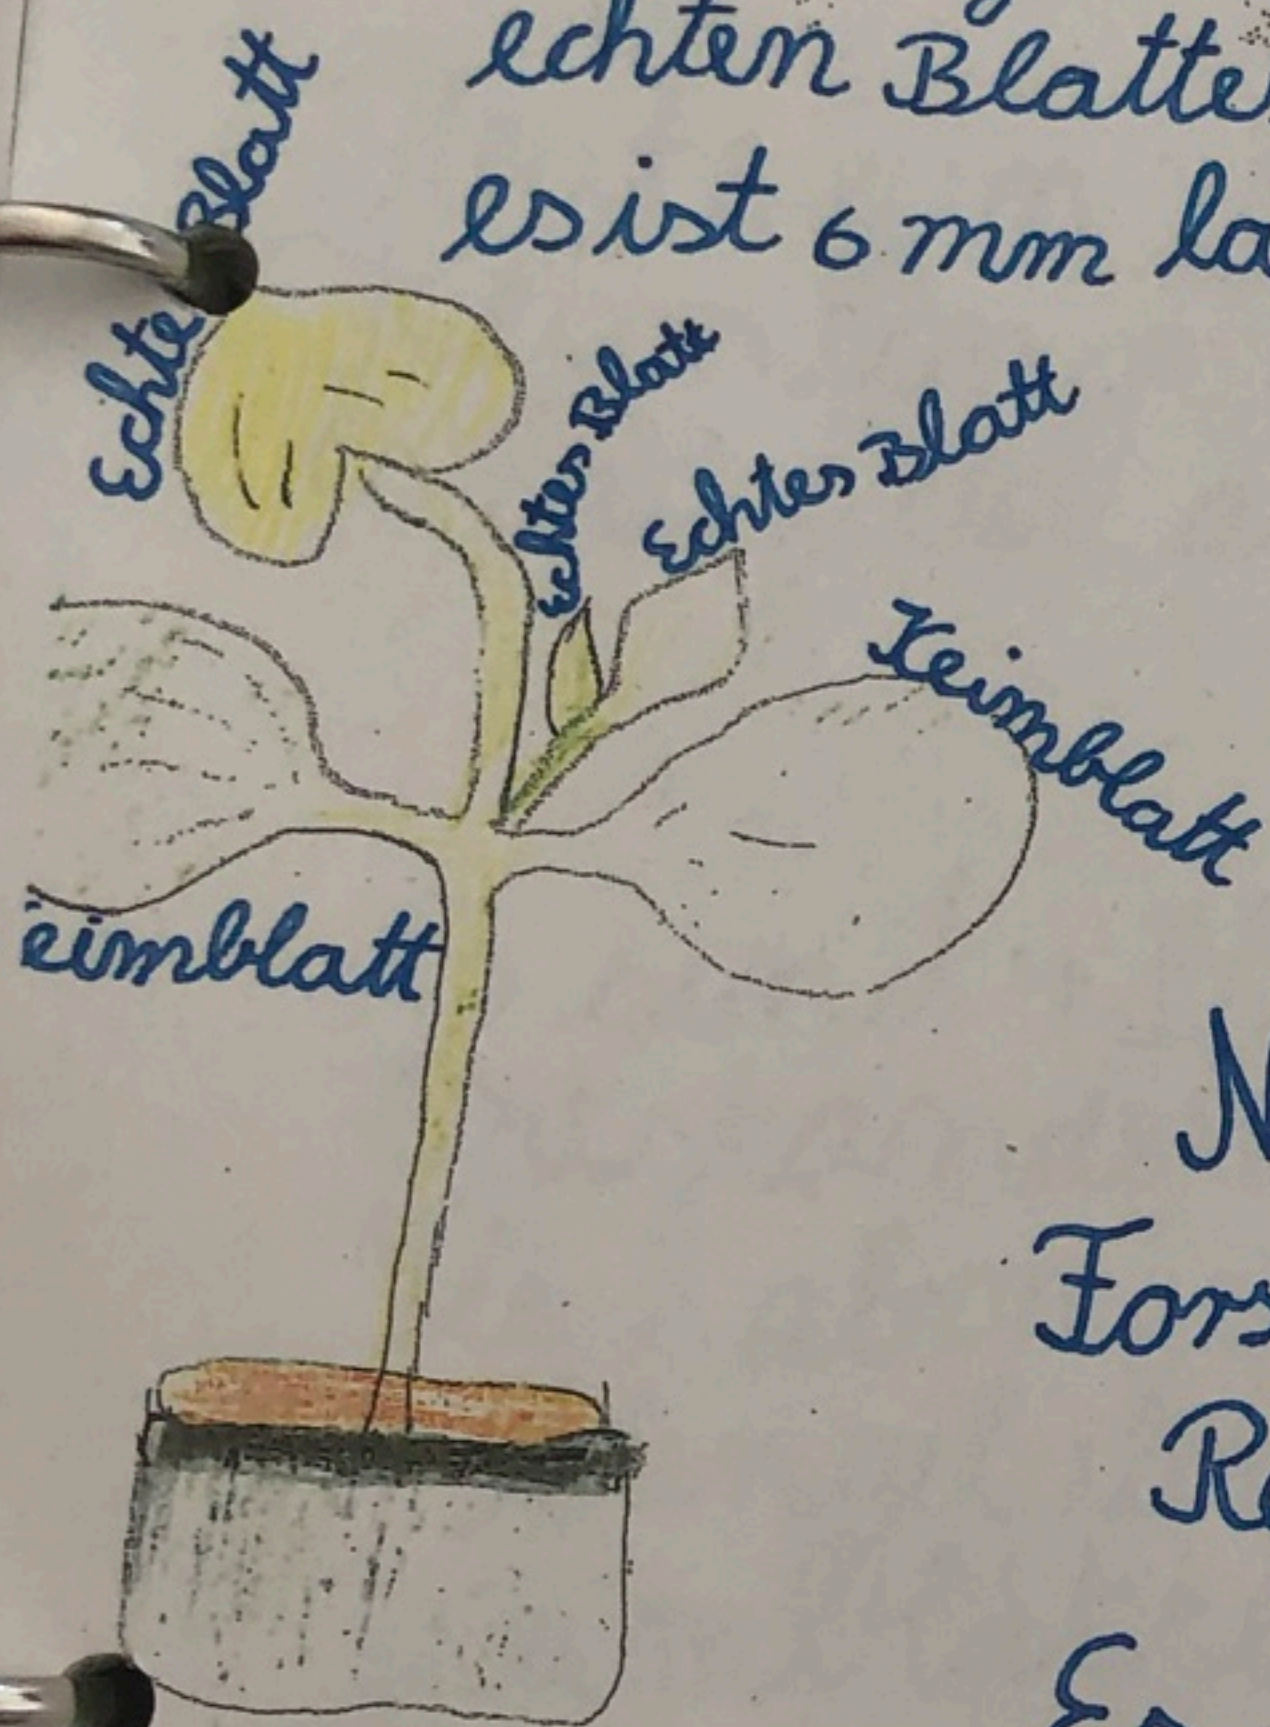 echten Blatte
es ist 6 mm la
Echte Blatt
Echtes Blatt
Echtes Blatt
Keimblatt
eimblatt
N
Fors
Re
Er